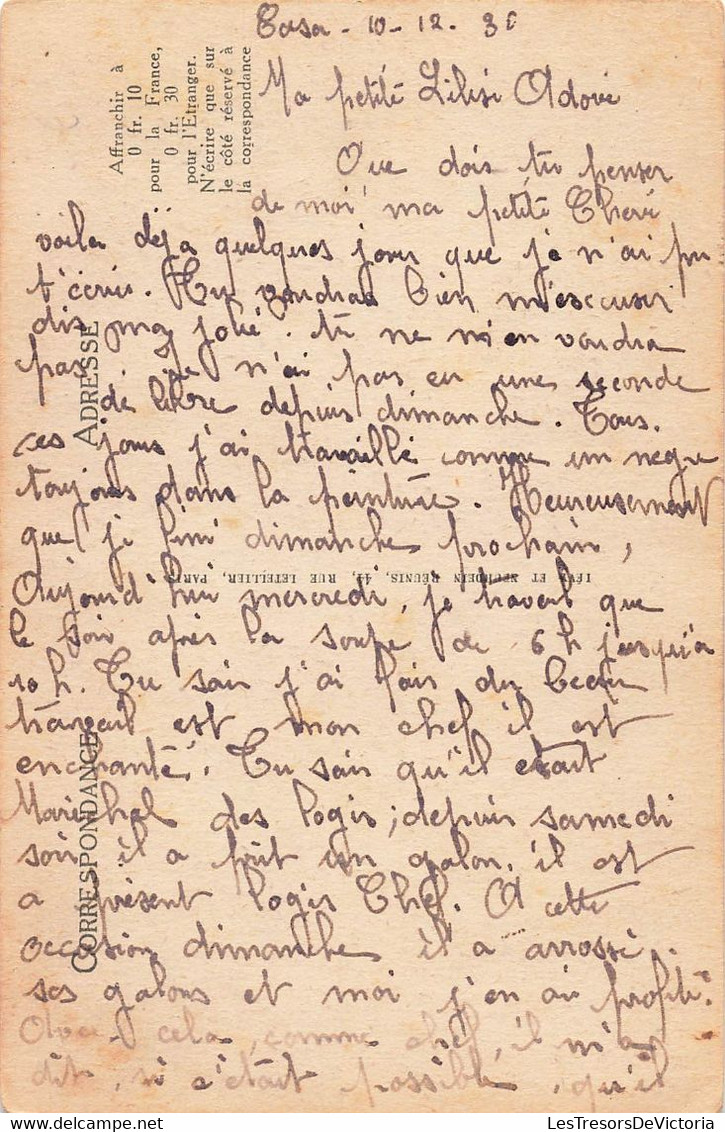 Casa - 10 - 12. 30
Ma petite Lilisi Adoré
Que dois tu penser
de moi ma petité Chéri
voila déja quelques jours que je n'ai pu
t'écrir. Tu voudras bien m'escuser
dis ma jolié. tu ne m'en voudra
pas je n'ai pas eu une seconde
de libre depuis dimanche. Tous.
ces jours j'ai travaillé comme un negre
toujours dans la peinture. Heureusement
que je fini dimanche prochain,
Aujourd'hui mercredi, je travail que
le soir après la soupe de 6 h jusqu'a
10 h. Tu sais j'ai fais du beau
travail est mon chef il est
enchanté. Tu sais qu'il etait
Maréchal des logis; depuis samedi
soir il a prit un galon, il est
a présent logis Chef. A cette
occasion dimanche il a arrossé
ses galons et moi j'en ai profité.
Avec cela, comme chef, il m'a
dit, si c'était possible, qu'il
Affranchir à
0 fr. 10
pour la France,
0 fr. 30
pour l'Etranger.
N'écrire que sur
le côté réservé à
la correspondance
ADRESSE
CORRESPONDANCE
LÉVY ET NEURDEIN RÉUNIS, 44, RUE LETELLIER, PARIS
LesTresorsDeVictoria